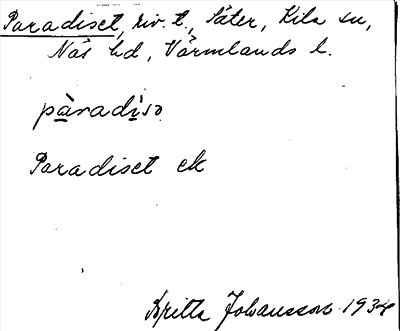 Paradiset, riv. t., Säter, Kila sn,
Näs hd, Värmlands l.
pàradi̱so
Paradiset ek
Britta Johansson 1934